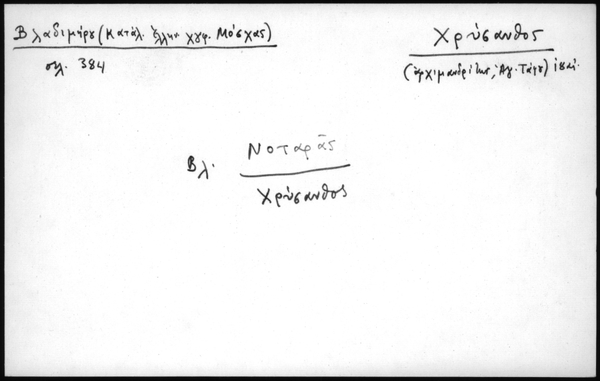 Βλαδιμήρου (Κατάλ. ἑλλην. χγφ. Μόσχας)
σελ. 384
Χρύσανθος
(ἀρχιμανδρίτης, Ἁγ. Τάφου)
Βλ. Νοταρᾶς
Χρύσανθος